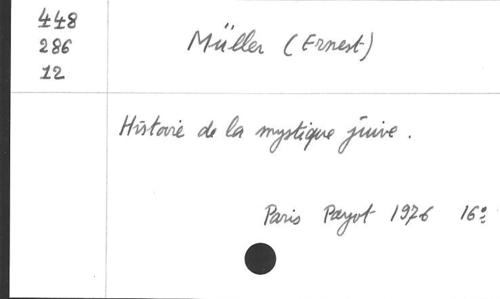 448
286
12
Müller (Ernest)
Histoire de la mystique juive.
Paris Payot 1976 16º